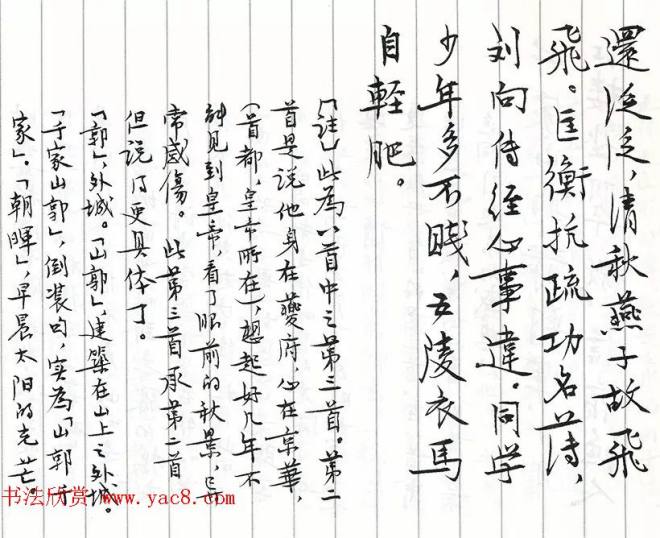 還泛泛，清秋燕子故飛
飛。匡衡抗疏功名薄，
刘向传经心事違。同学
少年多不賤，五陵衣馬
自輕肥。
「注」此為八首中之第三首。第二
首是说他身在夔府，心在京華，
（首都，皇帝所在），想起好几年不
能见到皇帝，看了眼前的秋景，
常感傷。此第三首承第二首
但说得更具体了。
「郭」，外城。「山郭」，建築在山上之外城。
「千家山郭」，倒裝句，实為「山郭千
家」。「朝暉」，早晨太阳的光芒。
书法欣赏 www.yac8.com